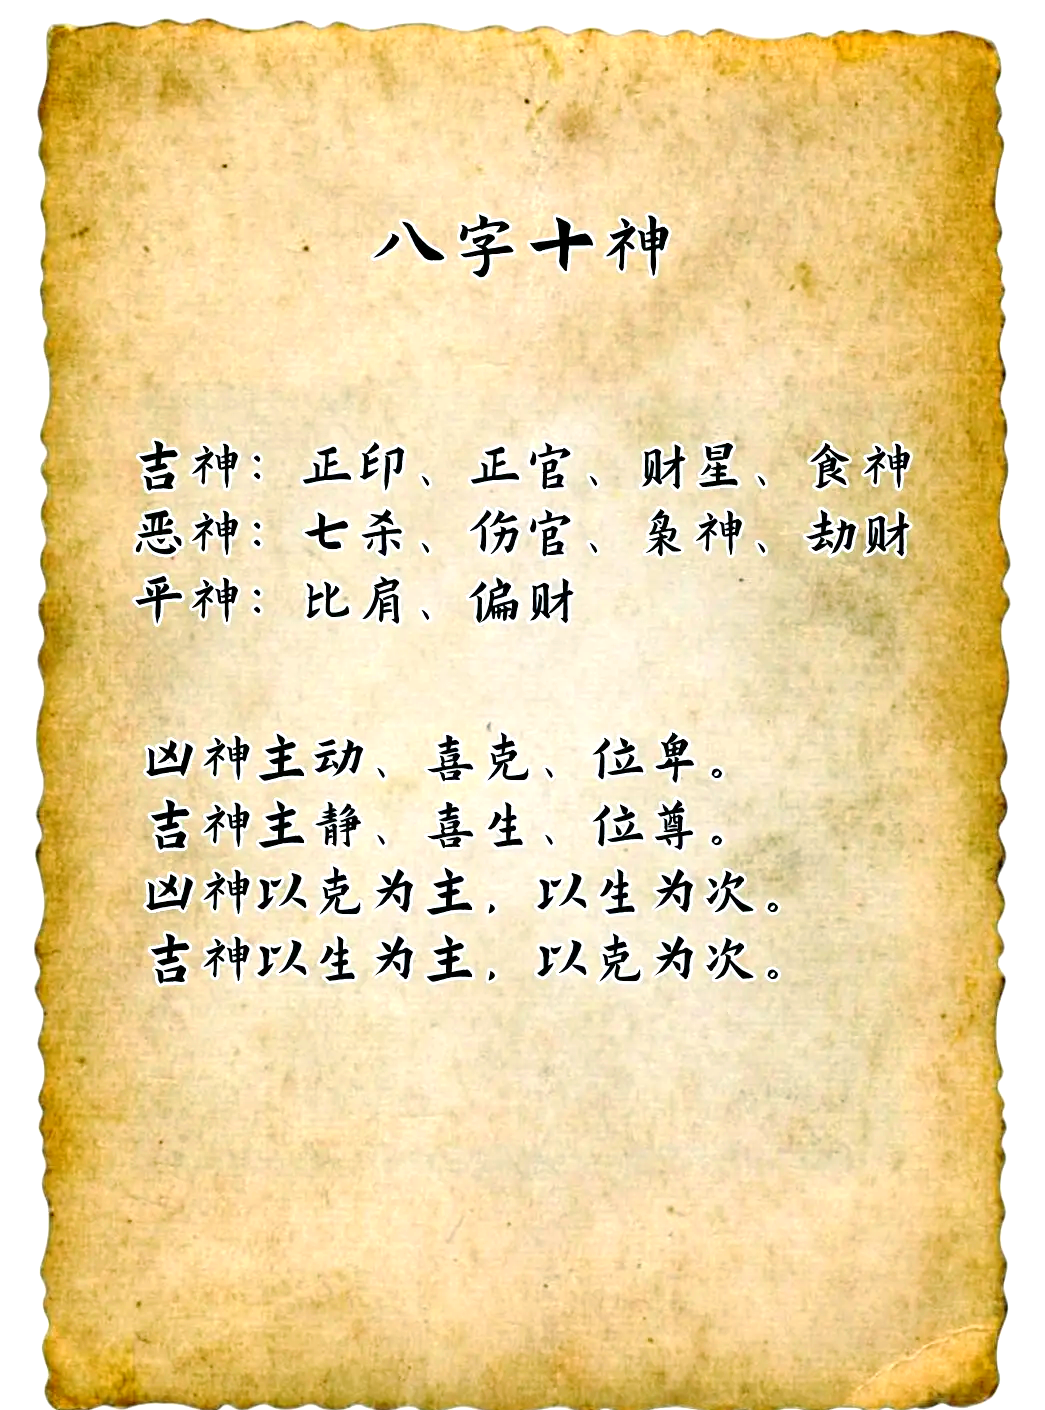 八字十神
吉神：正印、正官、财星、食神
恶神：七杀、伤官、枭神、劫财
平神：比肩、偏财
凶神主动、喜克、位卑。
吉神主静、喜生、位尊。
凶神以克为主，以生为次。
吉神以生为主，以克为次。